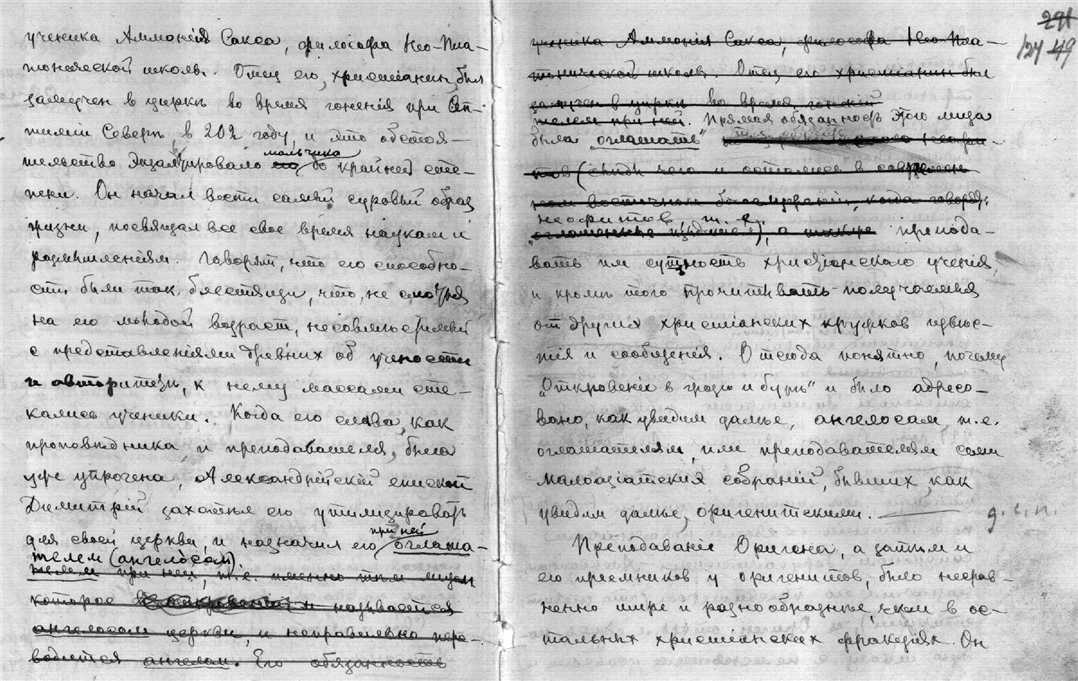 ученика Аммонія Сакса, философа Нео-Пла-
тонической школы. Отец его, христіанин, был
замучен в цирке во время гоненія при Сеп-
тиміи Севере в 202 году, и это обстоя-
мальчика
тельство экзальтировало его до крайней сте-
пени. Он начал вести самый суровый образ
жизни, посвящал все свое время наукам и
размышленіям. Говорят, что его способно-
сти были так блестящи, что, не смотря
на его молодой возраст, несовместимый
с представленіями древних об учености
и авторитете, к нему массами сте-
кались ученики. Когда его слава, как
проповѣдника и преподавателя, была
уже упрочена, Александрійскій епископ
Димитрій захотѣл его утилизировать
при ней
для своей церкви, и назначил его оглаша-
телем (ангелосом).
телем при ней, т.е. именно тѣм лицом
которое в и называется
ангелосом церкви, и неправильно пере-
водится ангелом. Его обязанность
291
127 49
ученика Аммонія Сакса, философа Нео-Пла-
тонической школы. Отец его христіанин был
замучен в цирке во время гоненій
телем при ней. Прямая обязанность этого лица
была "оглашать"
ков (следы чего и остались в современ-
ном восточном богослуженіи, когда говорят:
неофитов, т. е.
"оглашенные изыдите"), а также препода-
вать им сущность христіанского ученія,
и кромѣ того прочитывать получаемыя
от других христіанских кружков извѣс-
тія и сообщенія. Отсюда понятно, почему
"Откровеніе в грозѣ и бурѣ" и было адресо-
вано, как увидим далѣе, ангелосам, т.е.
оглашателям, или преподавателям семи
малоазіатских собраній, бывших, как
увидим далѣе, оригенитскими.
Преподаваніе Оригена, а затѣм и
его преемников у оригенитов, было несрав-
ненно шире и разнообразнѣе, чем в ос-
тальных христіанских фракціях. Он